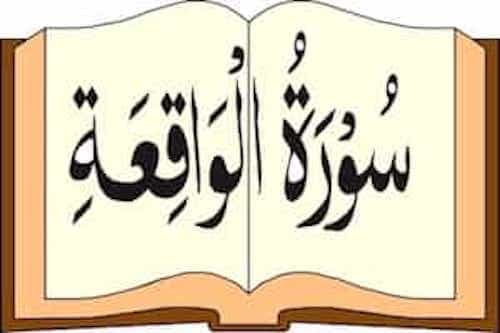 سُوْرَةُ الْوَاقِعَةِ